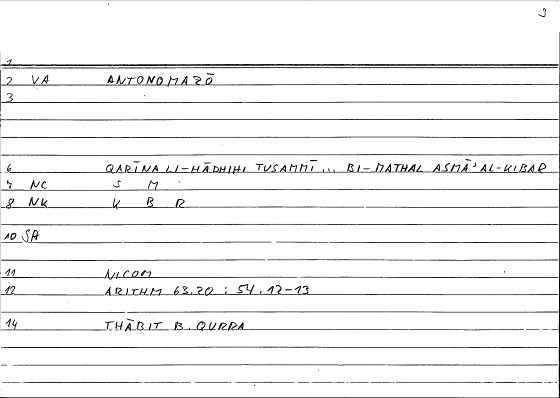 9
1
2 VA ANTONOMAZŌ
3
6 QARĪNA LI-HĀDHIHI TUSAMMĪ... BI-MATHAL ASMĀ' AL-KIBAR
7 NC S M
8 NK K B R
10 SA
11 NICOM
12 ARITHM 63.20 : 54.12-13
14 THĀBIT B. QURRA